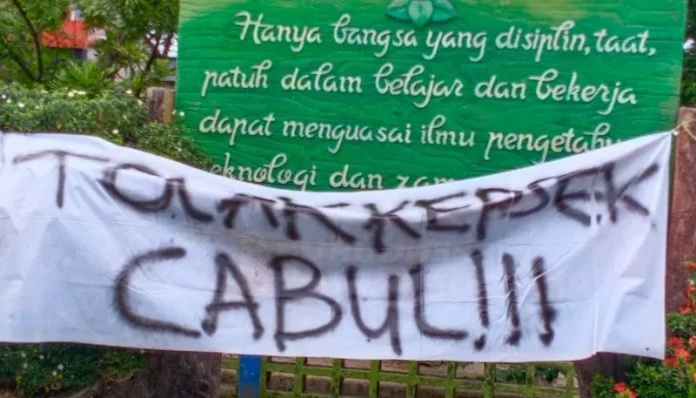 Hanya bangsa yang disiplin, taat,
patuh dalam belajar dan bekerja
dapat menguasai ilmu pengetahu
eknologi dan
TOLAK KEPSEK
CABUL!!!